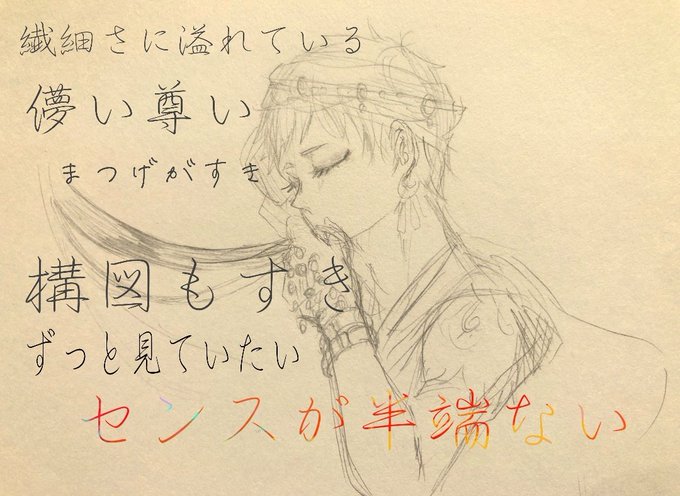 繊細さに溢れている
儚い尊い
まつげがすき
構図もすき
ずっと見ていたい
センスが半端ない